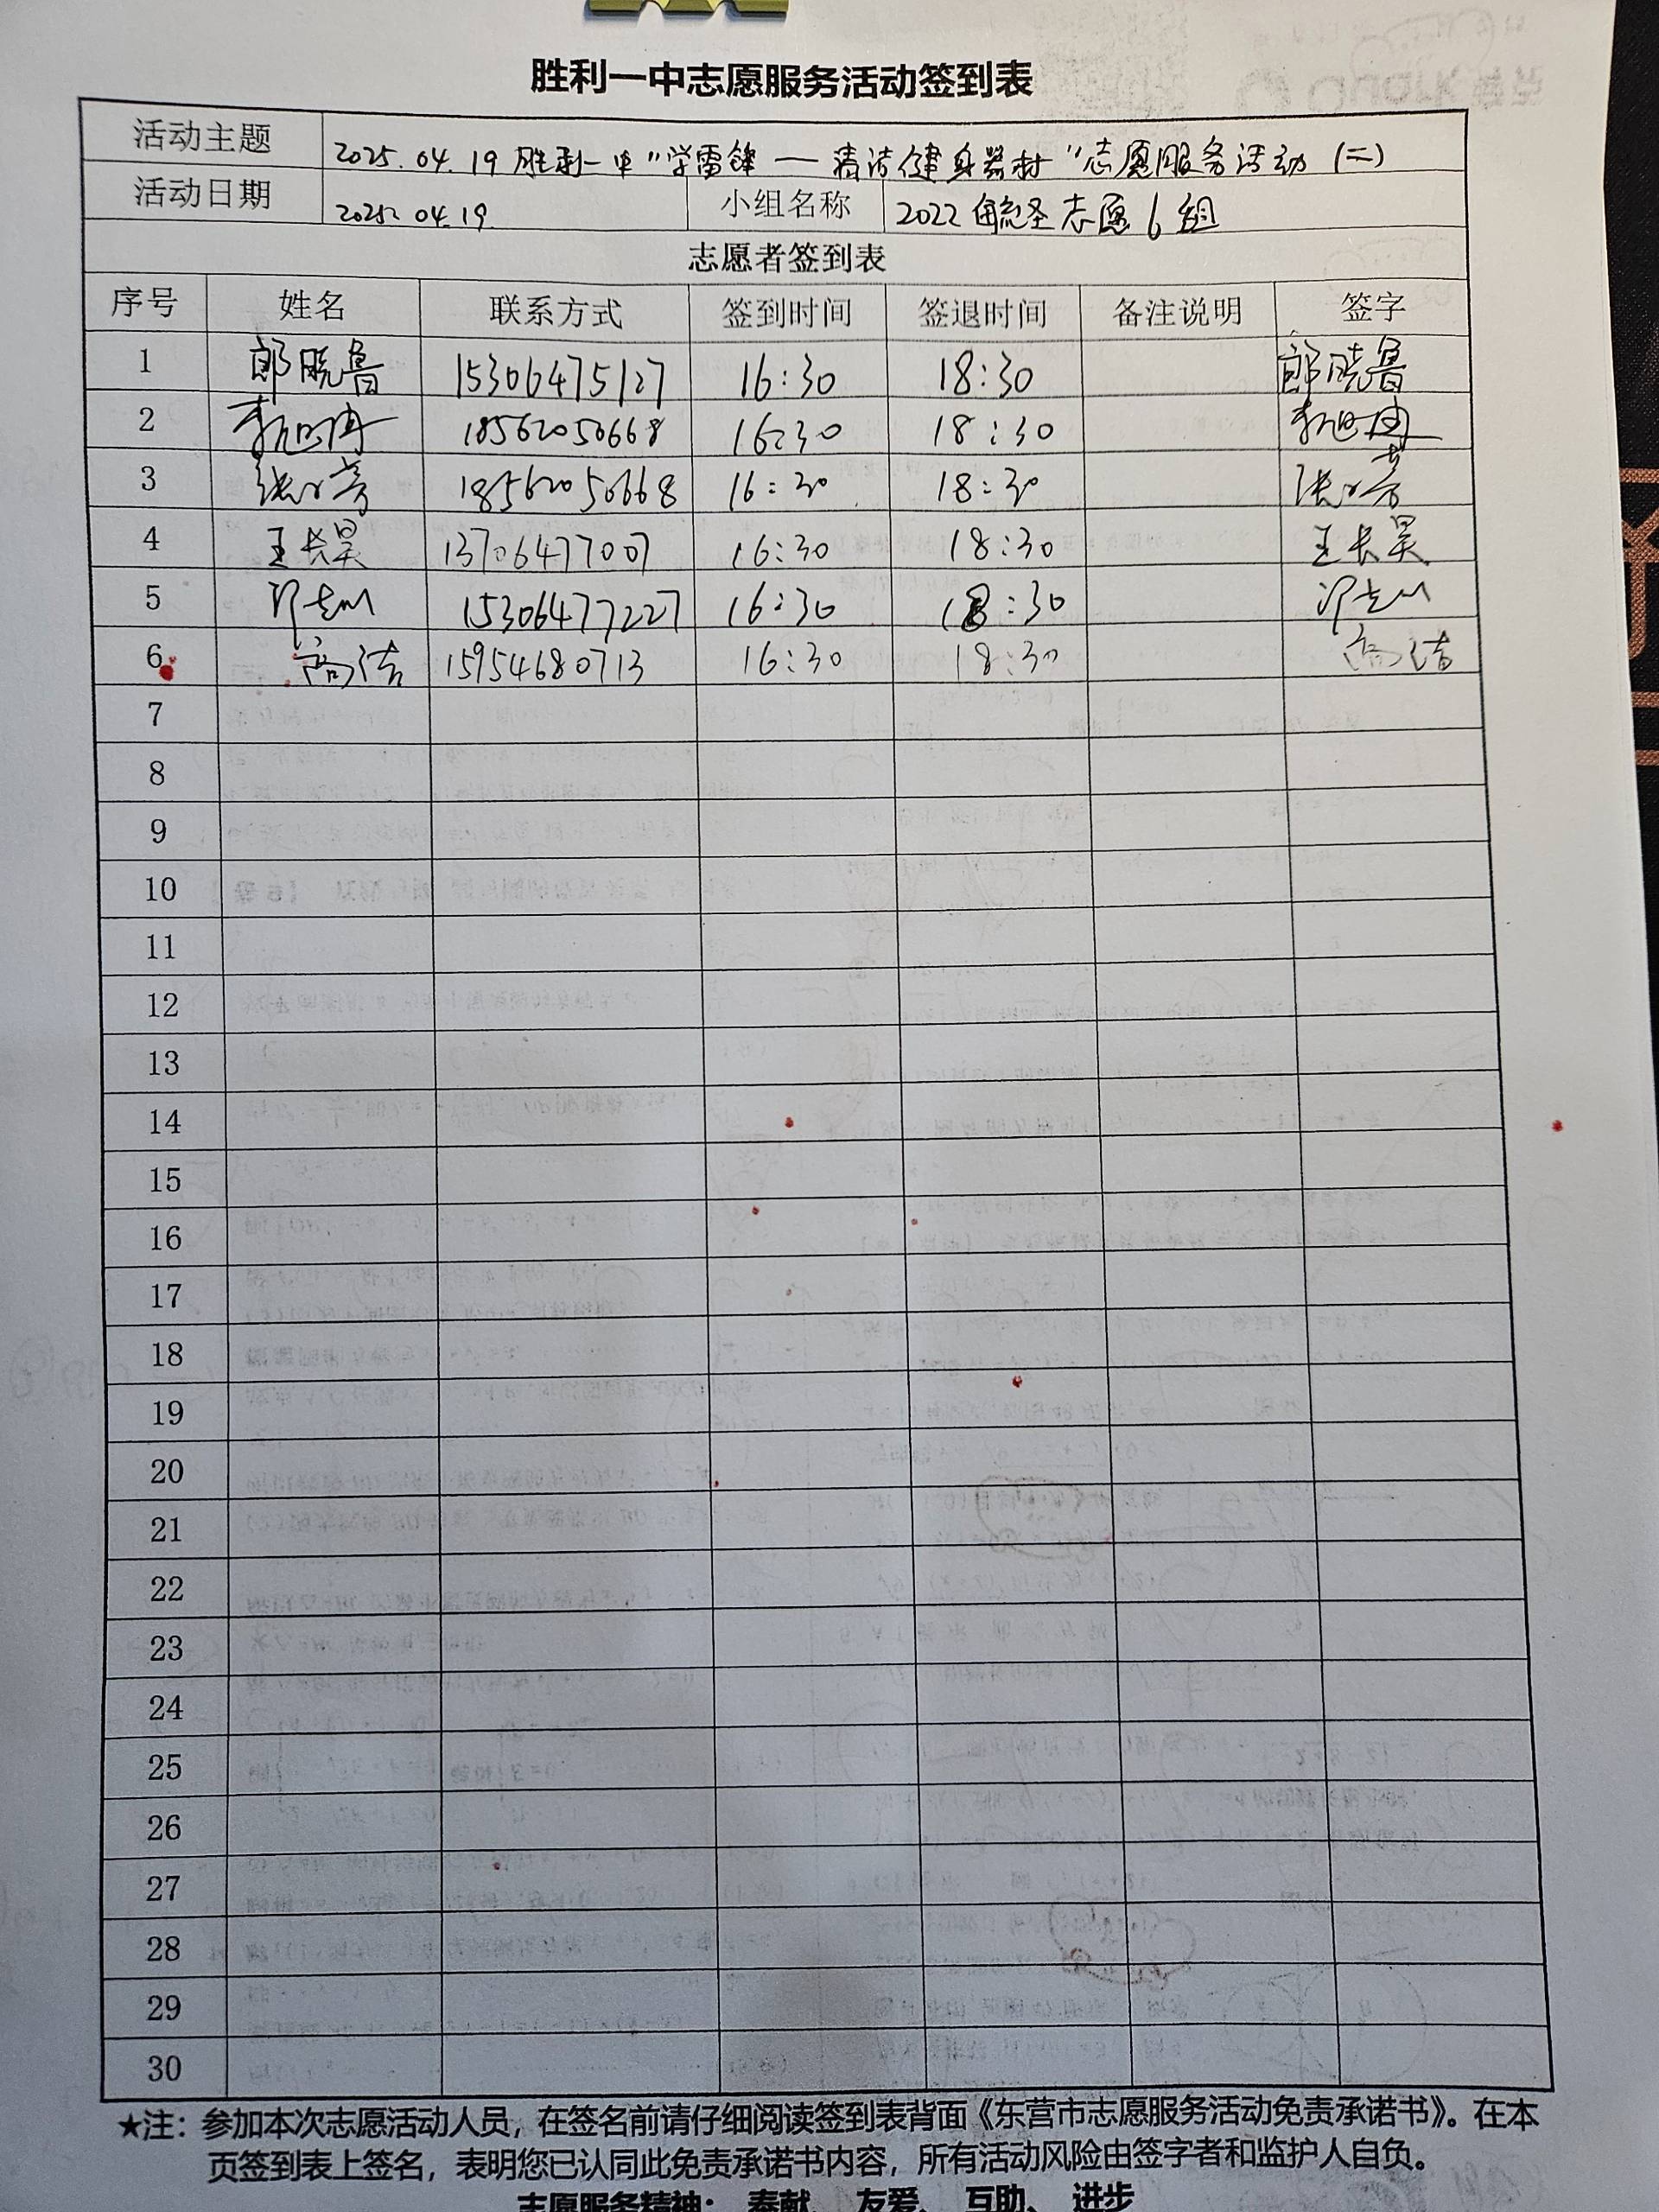 胜利一中志愿服务活动签到表
活动主题 2025.04.19 胜利一中“学雷锋——清洁健身器材”志愿服务活动（二）
活动日期 2025.04.19 小组名称 2022 志愿6组
志愿者签到表
序号 姓名 联系方式 签到时间 签退时间 备注说明 签字
1 郎晓鲁 15306475127 16:30 18:30 郎晓鲁
2 18562050668 16:30 18:30
3 18562050668 16:30 18:30
4 王长昊 13706477007 16:30 18:30 王长昊
5 15306477227 16:30 18:30
6 高洁 15954680713 16:30 18:30 高洁
7
8
9
10
11
12
13
14
15
16
17
18
19
20
21
22
23
24
25
26
27
28
29
30
★注：参加本次志愿活动人员，在签名前请仔细阅读签到表背面《东营市志愿服务活动免责承诺书》。在本
页签到表上签名，表明您已认同此免责承诺书内容，所有活动风险由签字者和监护人自负。
志愿服务精神： 奉献、 友爱、 互助、 进步